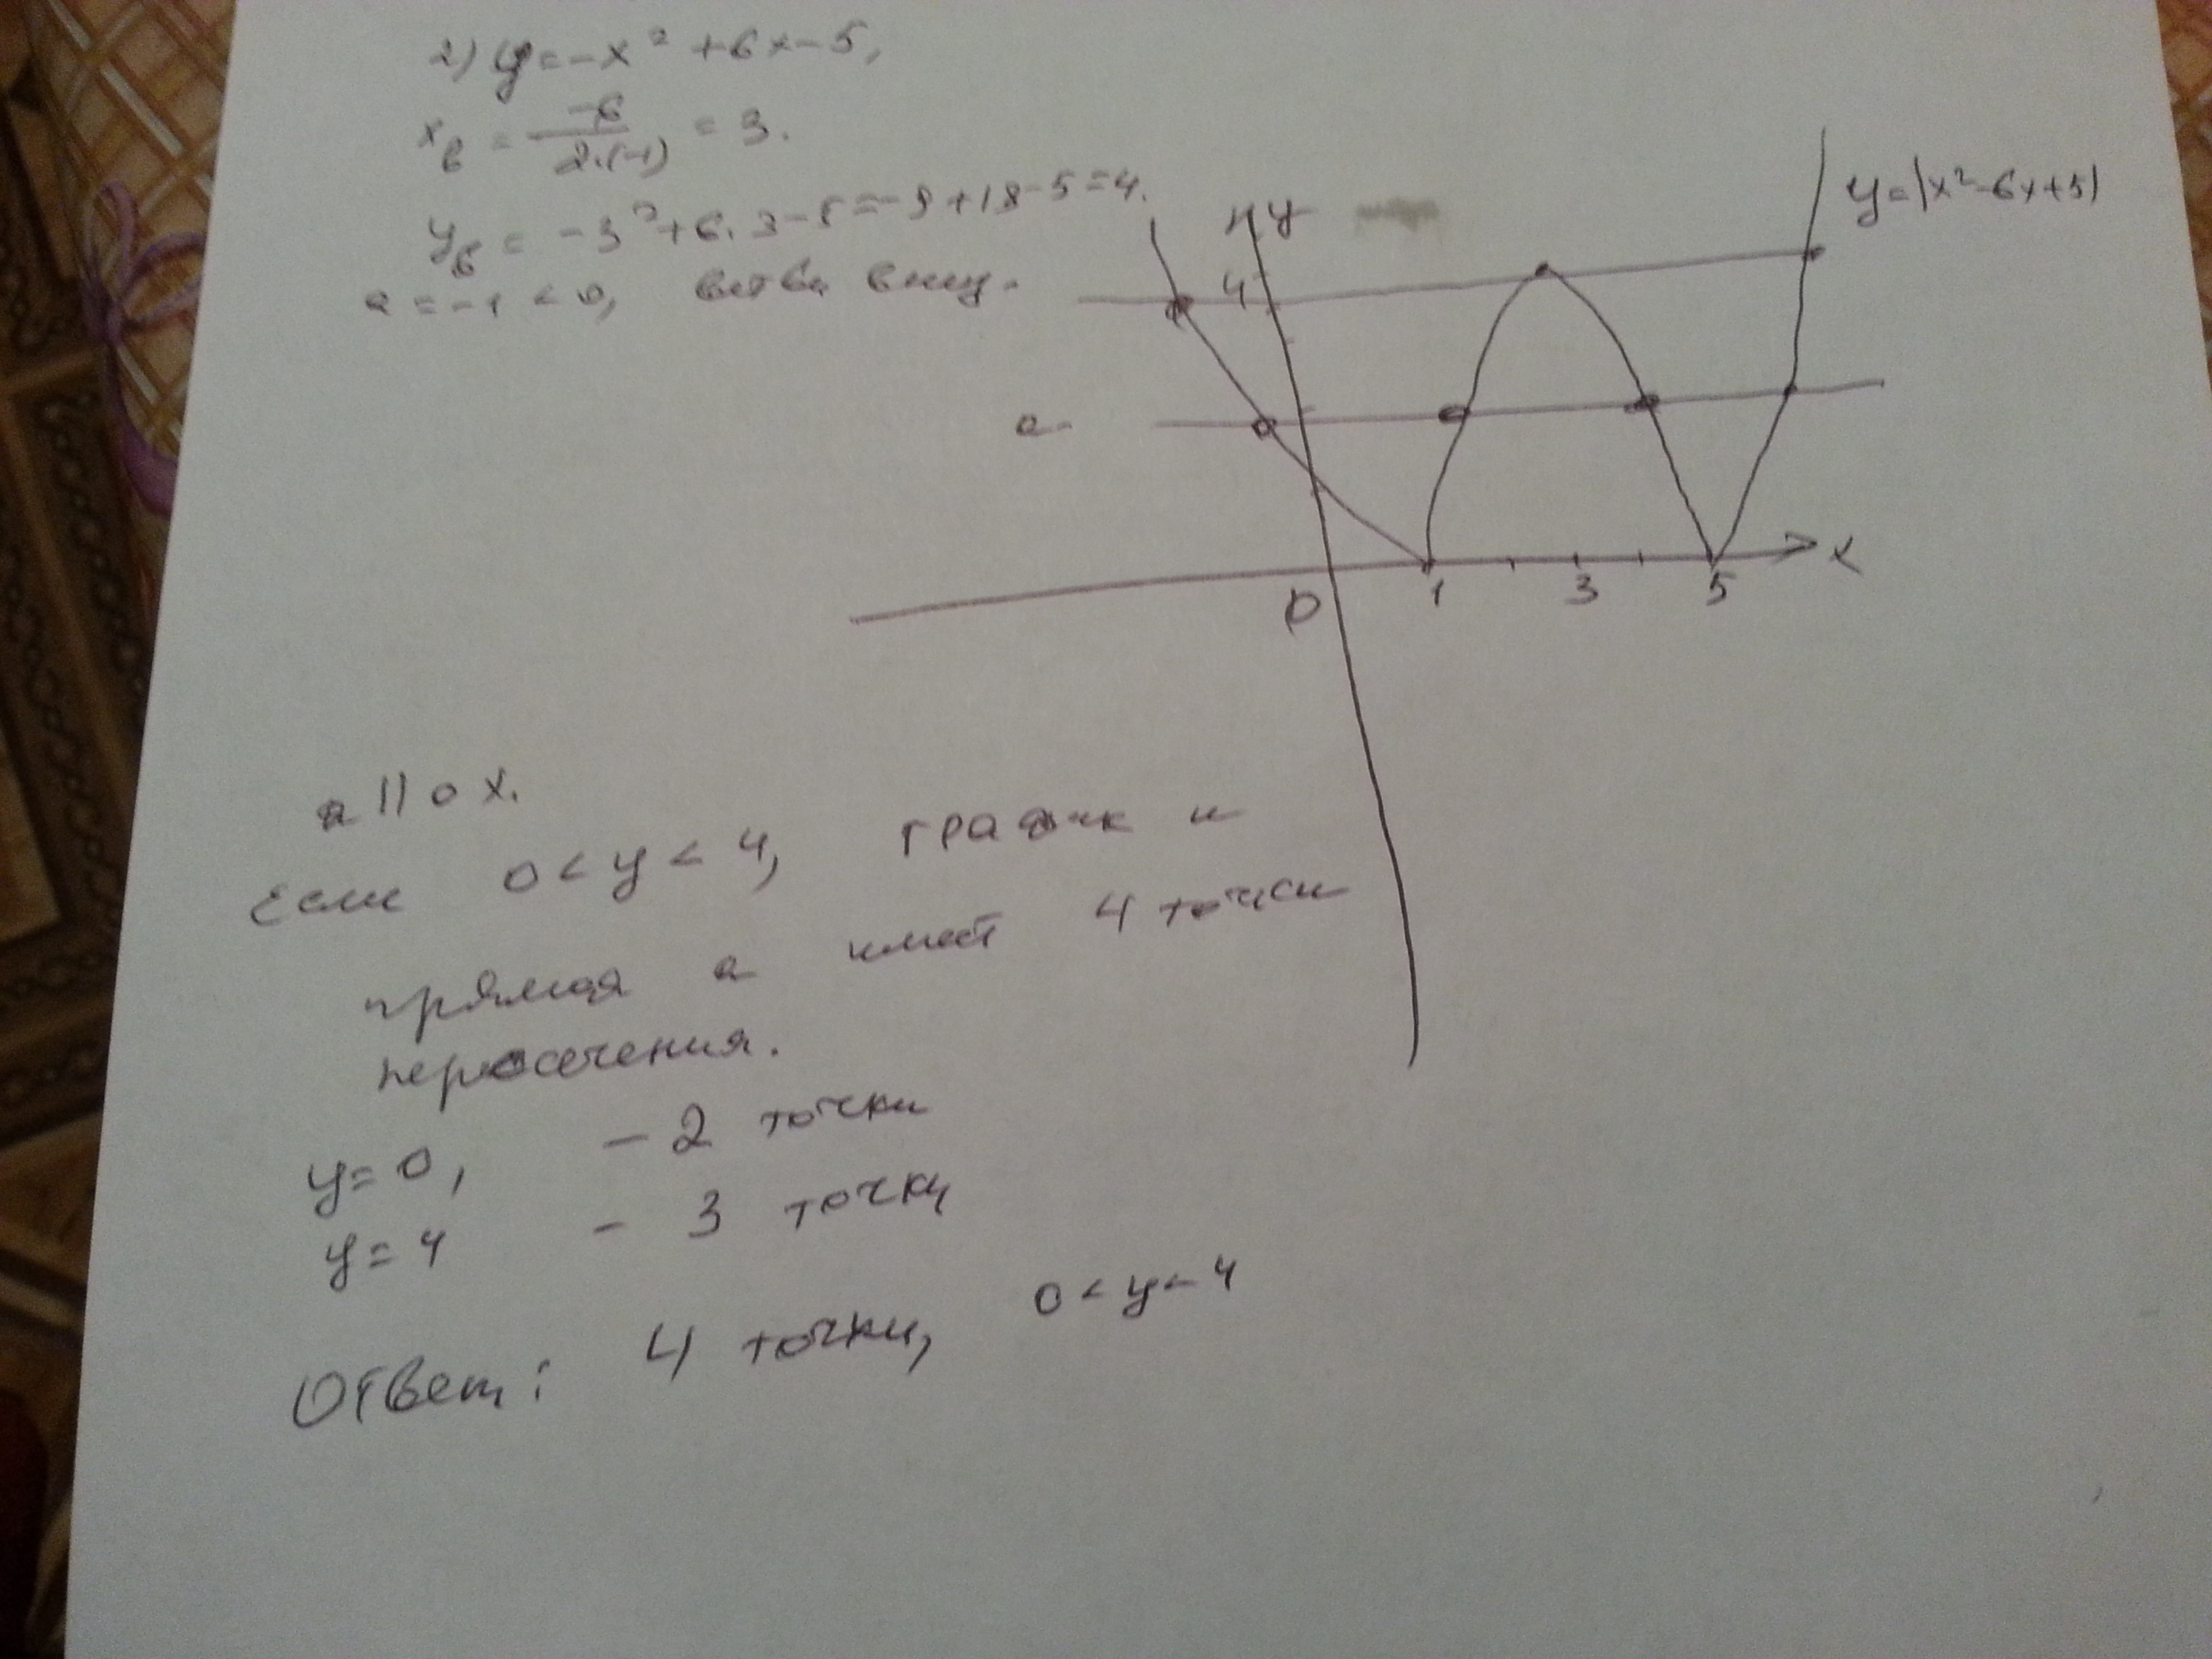 2) y=-x²+6x-5,
xв = -6/2·(-1) = 3.
yв = -3²+6·3-5=-9+18-5=4.
a=-1<0, ветви вниз.
y
y=|x²-6x+5|
4
a
x
0 1 3 5
a || ox.
Если 0<y<4, график и
прямая a имеет 4 точки
пересечения.
y=0, - 2 точки
y=4 - 3 точки
Ответ: 4 точки, 0<y<4